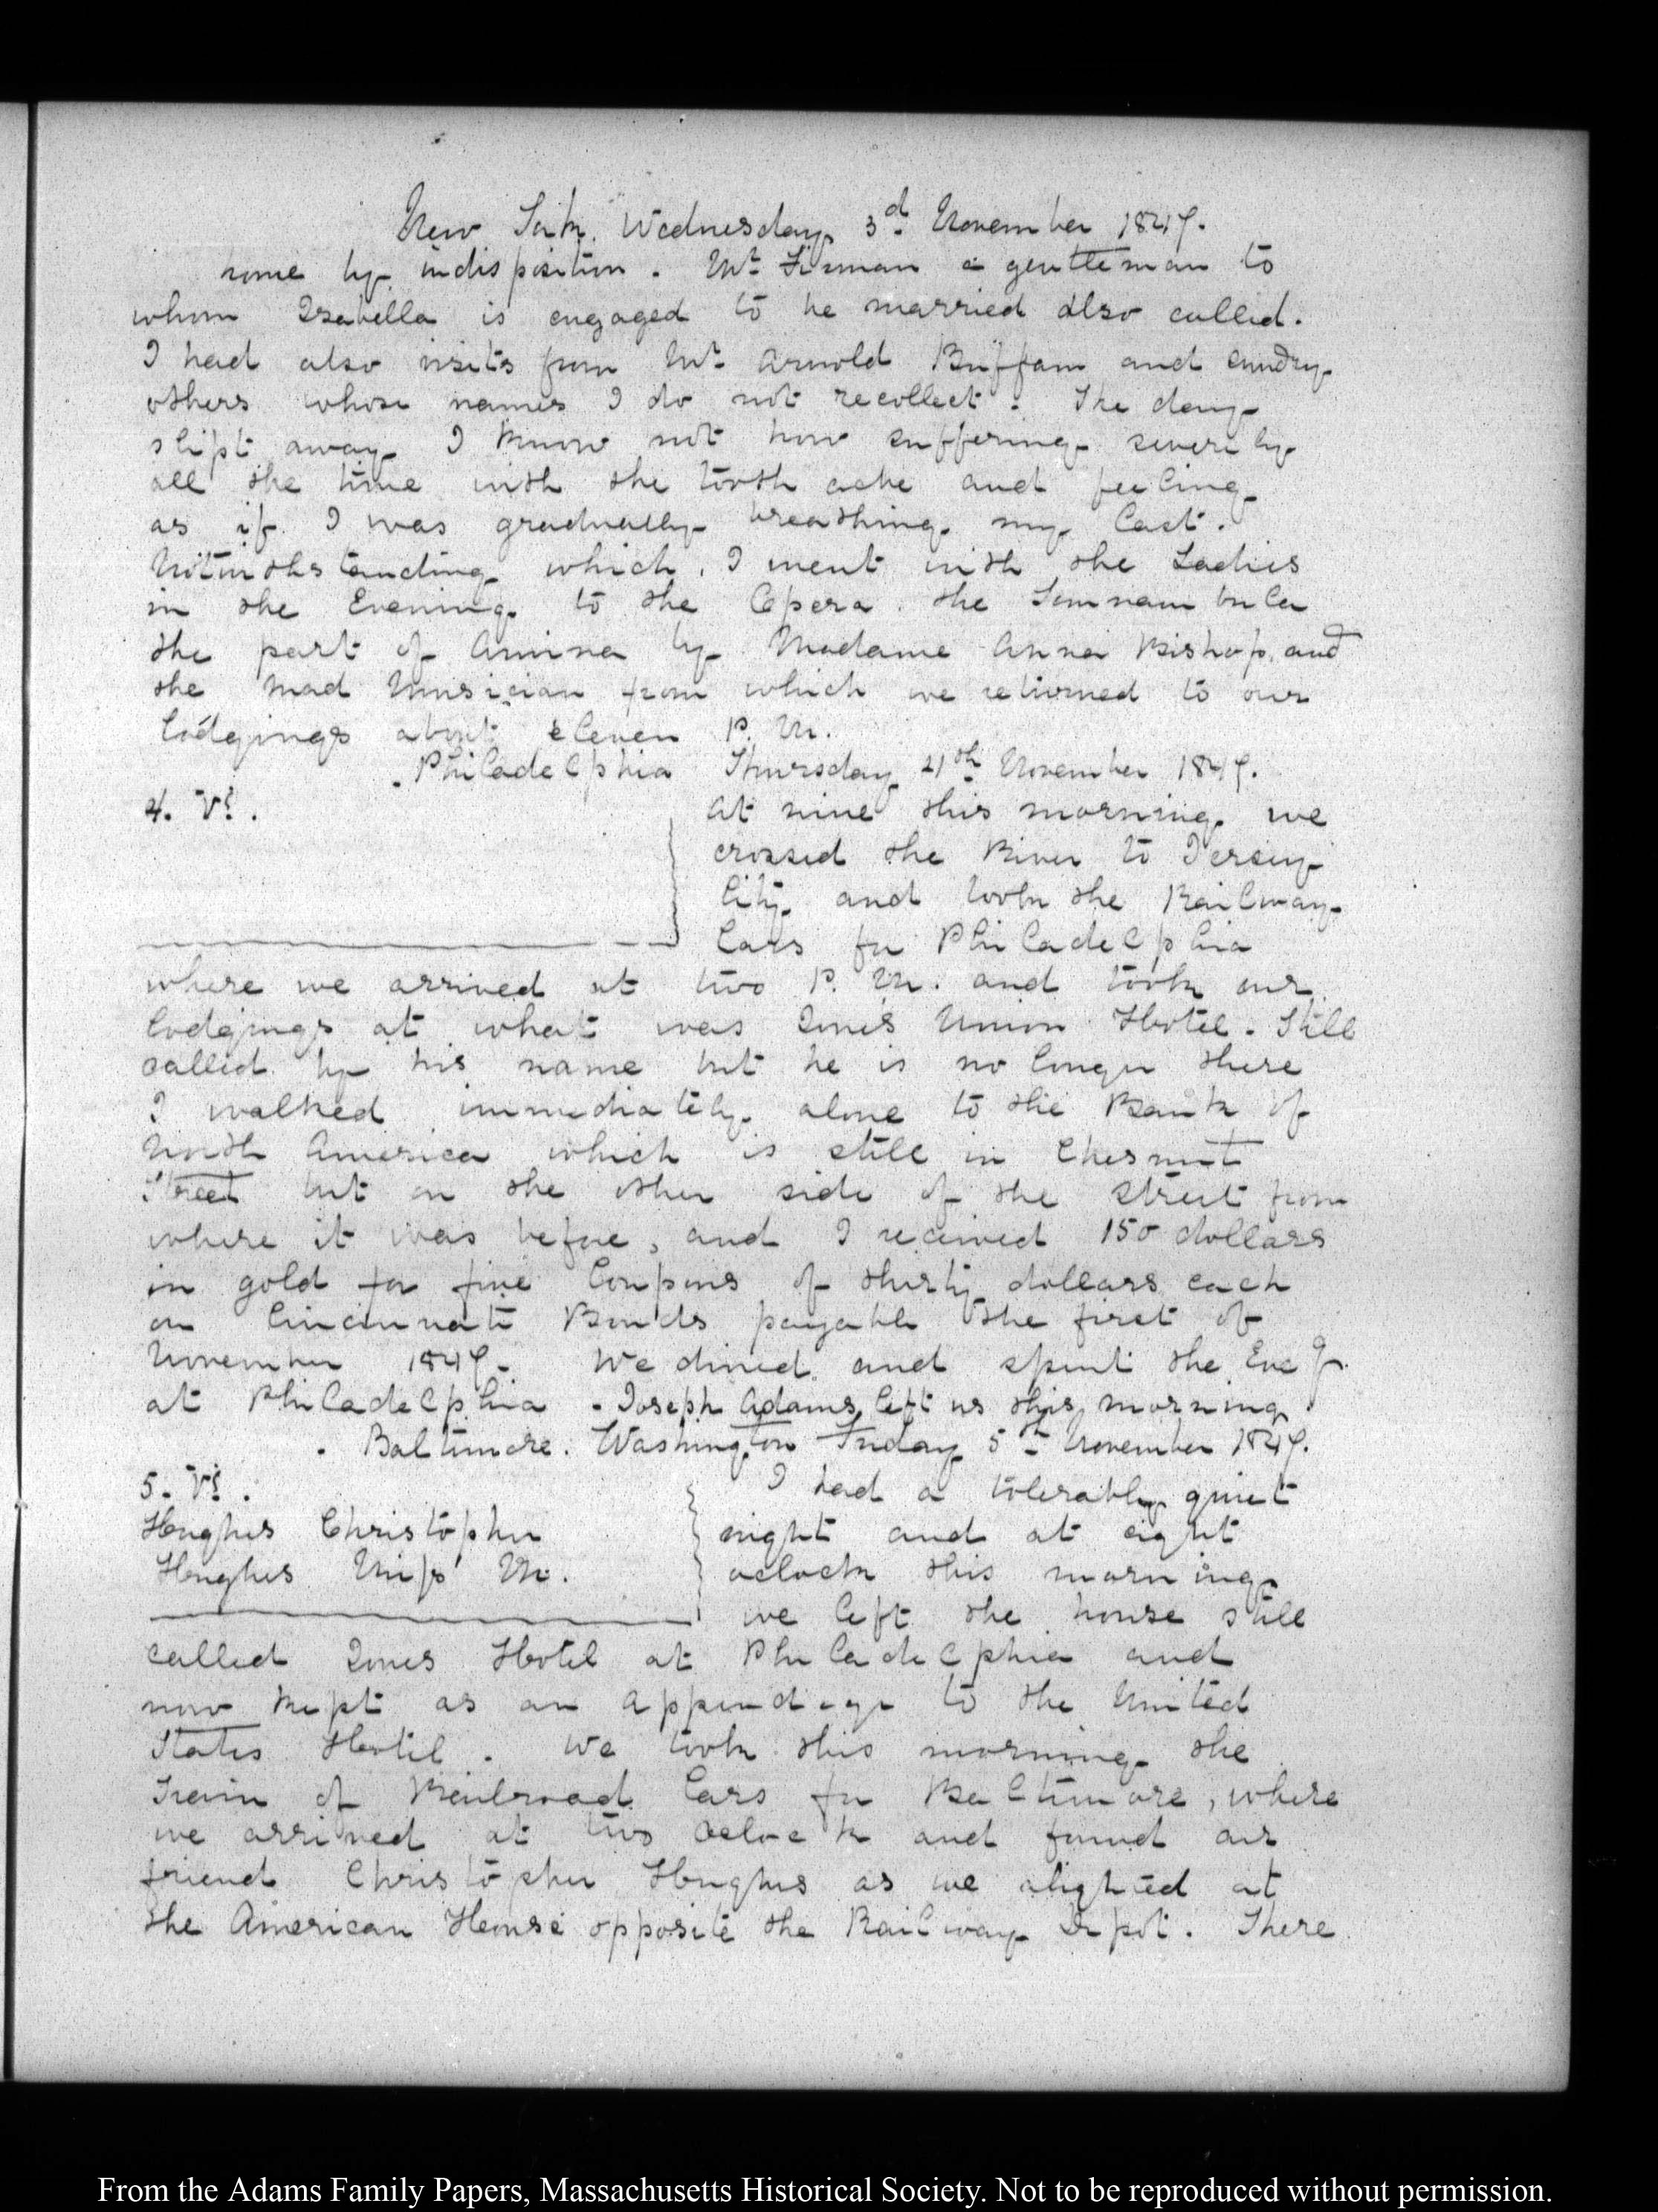 New York. Wednesday 3d November 1847.
home by indisposition. Mr. Firman a gentleman to
whom Isabella is engaged to be married also called.
I had also visits from Mr. Arnold Buffam and sundry
others whose names I do not recollect. The day
slipt away I know not how suffering severely
all the time with the tooth ache and feeling
as if I was gradually breathing my last.
Notwithstanding which, I went with the Ladies
in the Evening to the Opera. the Somnambula
the part of Amina by Madame Anna Bishop, and
the Mad Musician from which we returned to our
lodgings about eleven P. M.
Philadelphia Thursday 4th November 1847.
4. V:.
At nine this morning we
crossed the River to Jersey
City and took the Railway
Cars for Philadelphia
where we arrived at two P. M. and took our
lodgings at what was Jones's Union Hotel. Still
called by his name but he is no longer there
I walked immediately alone to the Bank of
North America which is still in Chesnut
Street but on the other side of the street from
where it was before, and I received 150 dollars
in gold for five Coupons of thirty dollars each
on Cincinnati Bonds payable the first of
November 1847. We dined and spent the Eveg.
at Philadelphia. Joseph Adams left us this morning
Baltimore. Washington Friday 5th November 1847.
5. V:.
Hughes Christopher
Hughes Miss M.
I had a tolerably quiet
night and at eight
oclock this morning
we left the house still
called Jones Hotel at Philadelphia and
now kept as an appendage to the United
States Hotel. We took this morning the
Train of Railroad Cars for Baltimore, where
we arrived at two oclock and found our
friend Christopher Hughes as we alighted at
the American House opposite the Railway Depot. There
From the Adams Family Papers, Massachusetts Historical Society. Not to be reproduced without permission.